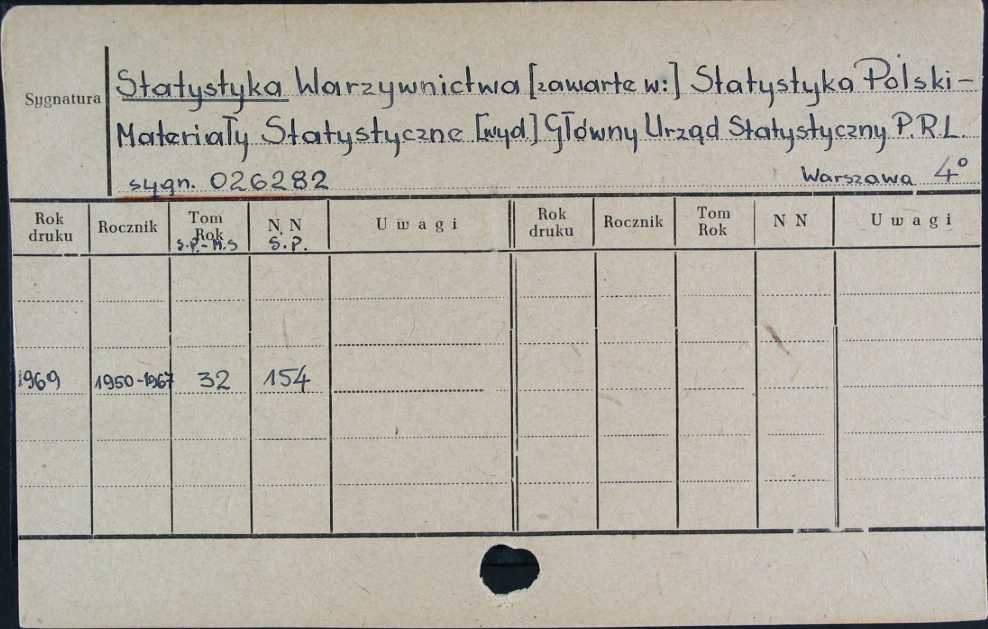 Statystyka Warzywnictwa [zawarte w:] Statystyka Polski-
Sygnatura
Materiały Statystyczne [wyd] Główny Urząd Statystyczny P.R.L.
sygn. 026282 Warszawa 4°
Rok druku Rocznik Tom Rok S.P.-M.S N. N S.P. Uwagi Rok druku Rocznik Tom Rok N N Uwagi
1969 1950-1967 32 154